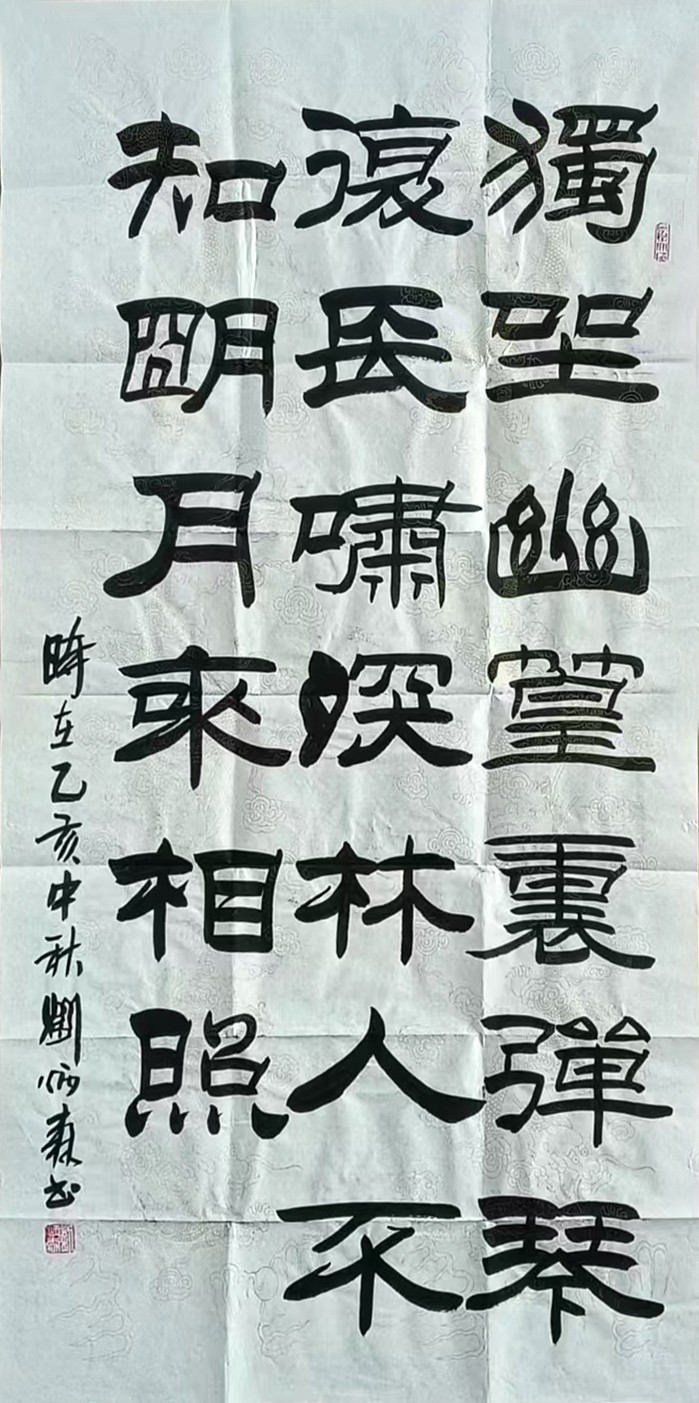 獨坐幽篁裏彈琴
復長嘯深林人不
知明月來相照
時在乙亥中秋劉炳森书